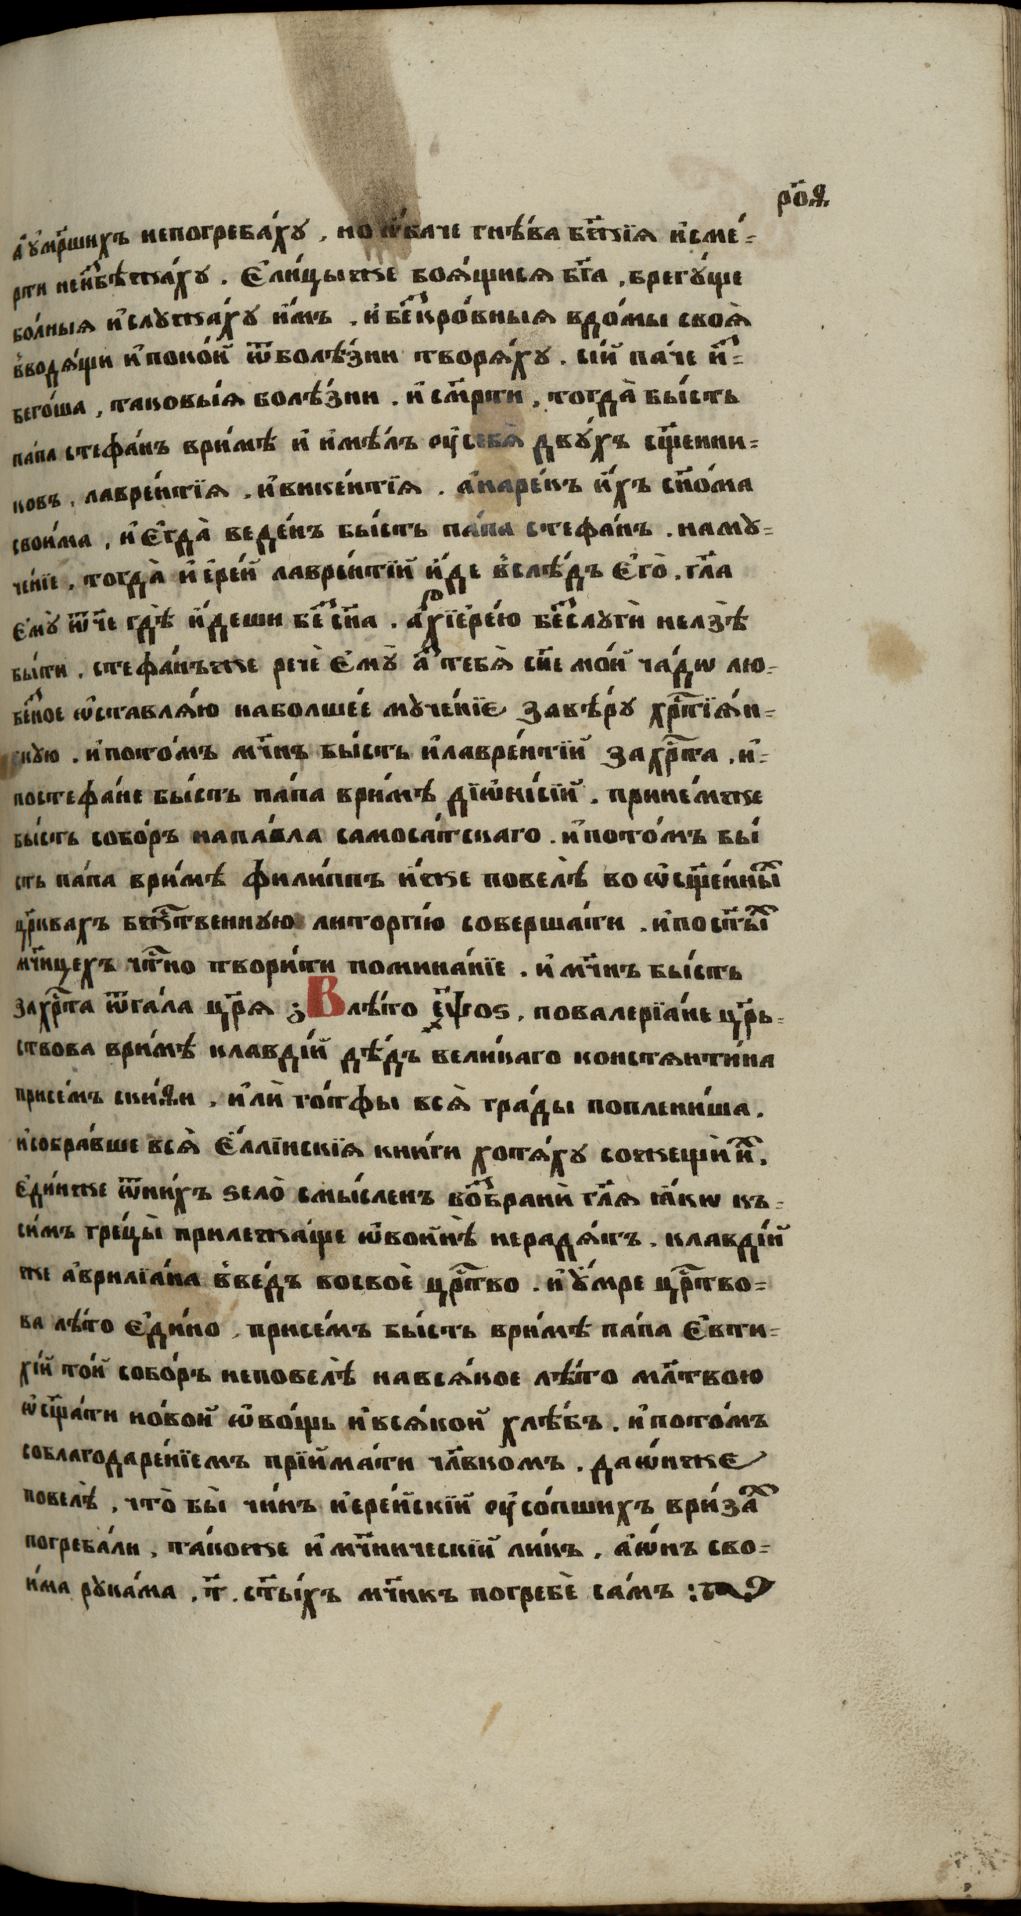 ро҃а.
а҆ѹ҆ме́ршихъ непогреба́хꙋ , но ѡ҆ба́че гнѣ́ва бж҃їѧ и҆сме́-
рти неи҆збѣжа́хꙋ . Е҆ли́цыже боѧ́щїисѧ бг҃а , брегꙋ́ще
болны́ѧ и҆слꙋжа́хꙋ и҆̀мъ . и҆безкро́вныѧ вдо́мы своѧ̀
вводѧ́щи и҆поко́й ѿболѣ́зни творѧ́хꙋ . сїи па́че и҆з-
бего́ша , таковы́ѧ болѣ́зни . и҆ см҃рти , тогда̀ бы́сть
па́па стефа́нъ ври́мѣ и҆ и҆мѣ́лъ ѹ҆себѧ̀ двꙋ́хъ сщ҃енни-
ковъ , лавре́нтїѧ . и҆вике́нтїѧ . а҆наре́къ и҆́хъ сн҃о́ма
свои́ма , и҆ є҆гда̀ веде́нъ бы́сть па́па стефа́нъ . намꙋ-
че́нїе . тогда̀ и҆ е҆ре́й лавре́нтїй и҆́де вслѣ́дъ є҆го̀ . гл҃а
є҆мꙋ̀ ѿ҆ч҃е гдѣ̀ и҆́деши без̾сн҃а . а҆рхїе҆ре́ю без̾слꙋгѝ нелзѣ̀
бы́ти . стефа́нъже речѐ є҆мꙋ̀ а҆з̾ тебѧ̀ сн҃е мо́й ча́дѡ лю-
бе́зное ѡ҆ставлѧ́ю наболше́е мꙋче́нїе завѣ́рꙋ хрⷭ҇тїѧ́н-
скꙋю . и҆пото́мъ мч҃нъ бы́сть и҆лавре́нтїй захрⷭ҇та̀ . и҆-
постефа́не бы́сть па́па ври́мѣ дїѡни́сїй . принемже
бы́сть собо́ръ напа́вла самоса́тскаго . и҆пото́мъ бы́
сть па́па ври́мѣ филиппъ и҆́же повелѣ̀ во ѡ҆сщ҃е́нныхъ
цр҃квахъ бжⷭ҇твеннꙋю литоргі́ю соверша́ти . и҆пост҃ы́хъ
мч҃ницехъ чⷭ҇тно твори́ти помина́нїе . и҆ мч҃нъ бы́сть
захрⷭ҇та̀ ѿга́ла цр҃ѧ ꙁ Влѣ́то ҂е҃ѱоѕ , повалерїа́не цр҃ь-
ствова ври́мѣ клавді́й дѣ́дъ вели́каго констѧнти́на
присе́мъ ски́ѳи , и҆лѝ го́тфы всѧ̀ гра́ды поплени́ша .
и҆собра́вше всѧ̀ є҆́ллїнскїѧ кни́ги хотѧ́хꙋ сожещѝ и҆̀хъ .
є҆ди́нже ѿни́хъ ѕело̀ смы́сленъ во́збранѝ гл҃ѧ ꙗ҆́кѡ къ-
си́мъ гре́цы̀ прилежа́ще ѡ҆войнѣ̀ нерадѧ́тъ . клавді́й
же а҆врилїа́на вве́дъ восвоѐ црⷭ҇тво . и҆ѹ҆́мре црⷭ҇тво-
ва лѣ́то є҆ди́но , присе́мъ бы́сть ври́мѣ па́па є҆вти-
хі́й то́й собо́ръ неповелѣ̀ навсѧ́кое лѣ́то мл҃твою
ѡ҆сщ҃а́ти но́вой ѡ҆во́щь и҆всѧ́кой хлѣ́бъ . и҆пото́мъ
соблагодаре́нїемъ прїйма́ти чл҃вкомъ . даѡ҆́нже
повелѣ̀ , что̀ бы̀ чи́нъ и҆ере́йскїй ѹ҆со́пшихъ ври́захъ
погреба́ли , та́коже и҆ мч҃нническїй ли́къ . а҆ѡ҆́нъ сво-
и́ма рꙋка́ма . т҃ . ст҃ы́хъ мч҃нкъ погребѐ са́мъ :